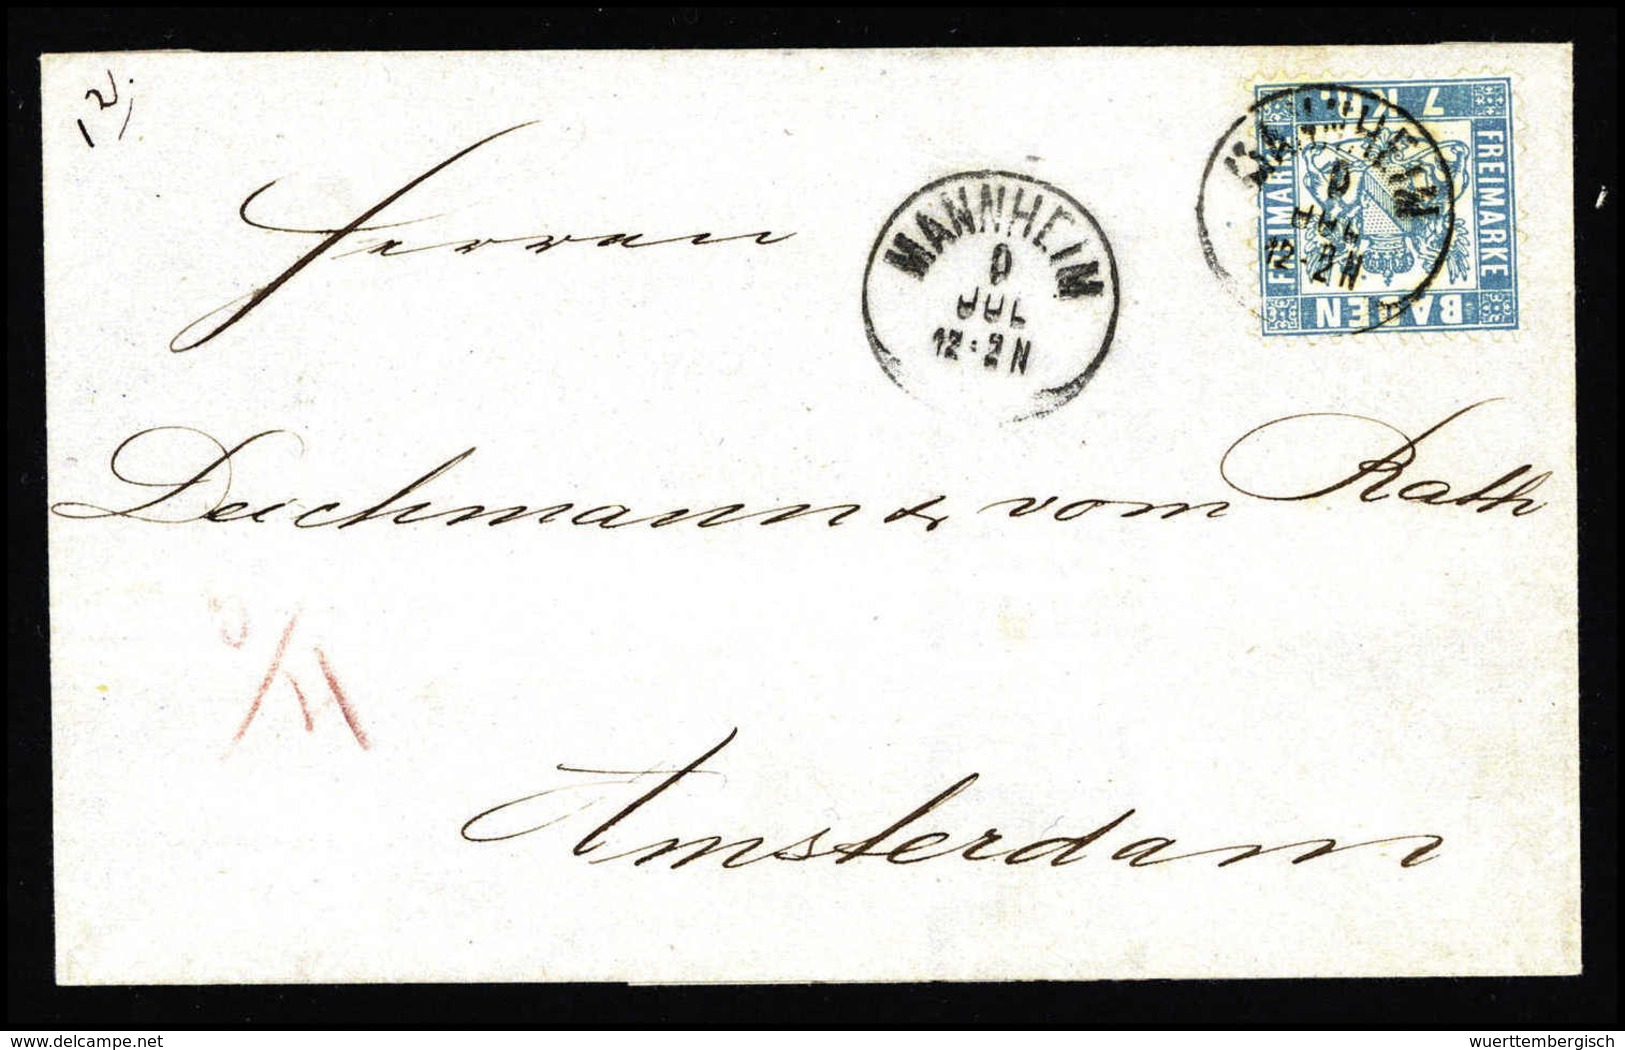 12)
MANNHEIM
9
JUL
12-2N
MANNHEIM
9
JUL
12-2N
7 KR.
FREIMARKE
FREIMARKE
BADEN
Herren
Deichmann & vom Rath
Amsterdam
www.delcampe.net
wuerttembergisch